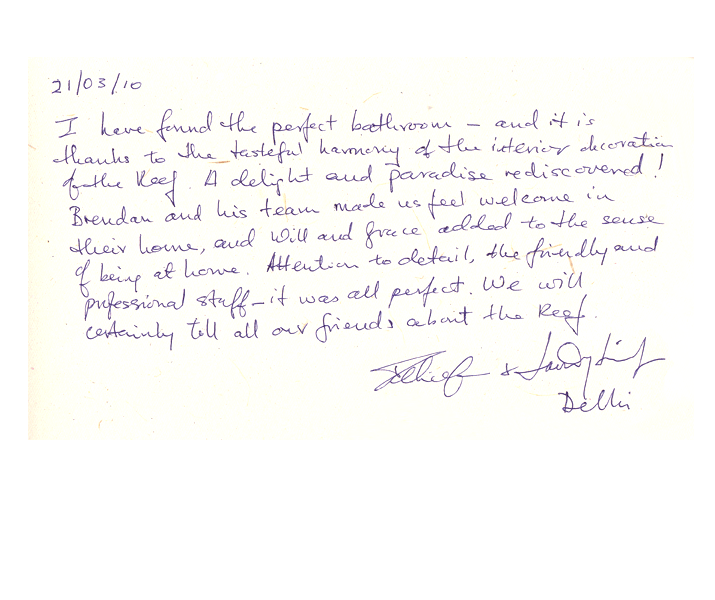 21/03/10
I have found the perfect bathroom – and it is
thanks to the tasteful harmony of the interior decoration
of the Reef. A delight and paradise rediscovered!
Brendan and his team made us feel welcome in
their home, and Will and Grace added to the sense
of being at home. Attention to detail, the friendly and
professional staff – it was all perfect. We will
certainly tell all our friends about the Reef.
&
Delhi